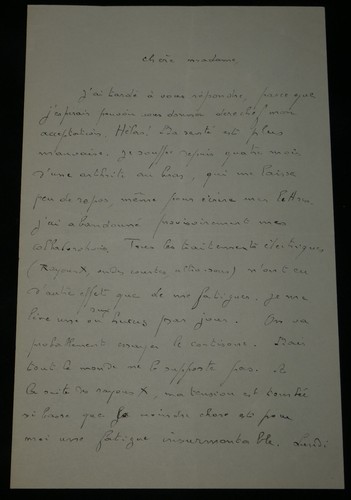 chère madame,
J'ai tardé à vous répondre, parce que
j'espérais pouvoir vous donner derechef mon
acceptation. Hélas! Ma santé est plus
mauvaise. Je souffre depuis quatre mois
d'une arthrite au bras, qui me laisse
peu de repos, même pour écrire mes lettres.
J'ai abandonné provisoirement mes
collaborations. Tous les traitements électriques
(Rayons X, ondes courtes ultra-sons) n'ont eu
d'autre effet que de me fatiguer. Je me
lève une ou deux heures par jour. On va
probablement essayer la cortisone. Mais
tout le monde ne la supporte pas. A
la suite des rayons X, ma tension est tombée
si basse que la moindre chose est pour
moi une fatigue insurmontable.